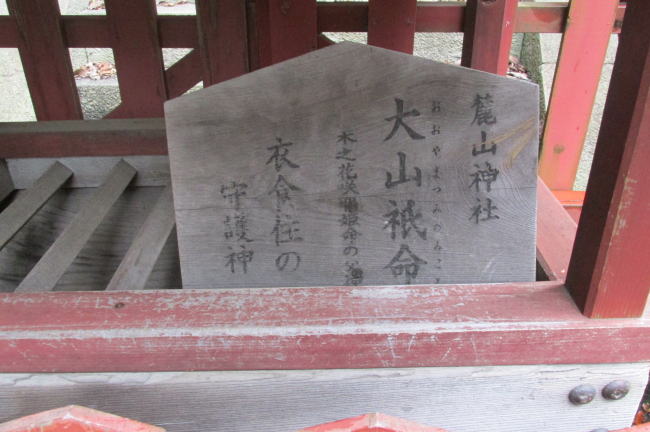 麓山神社
おおやまつみのみこと
大山祇命
木之花咲耶姫命の父神
衣食住の
守護神